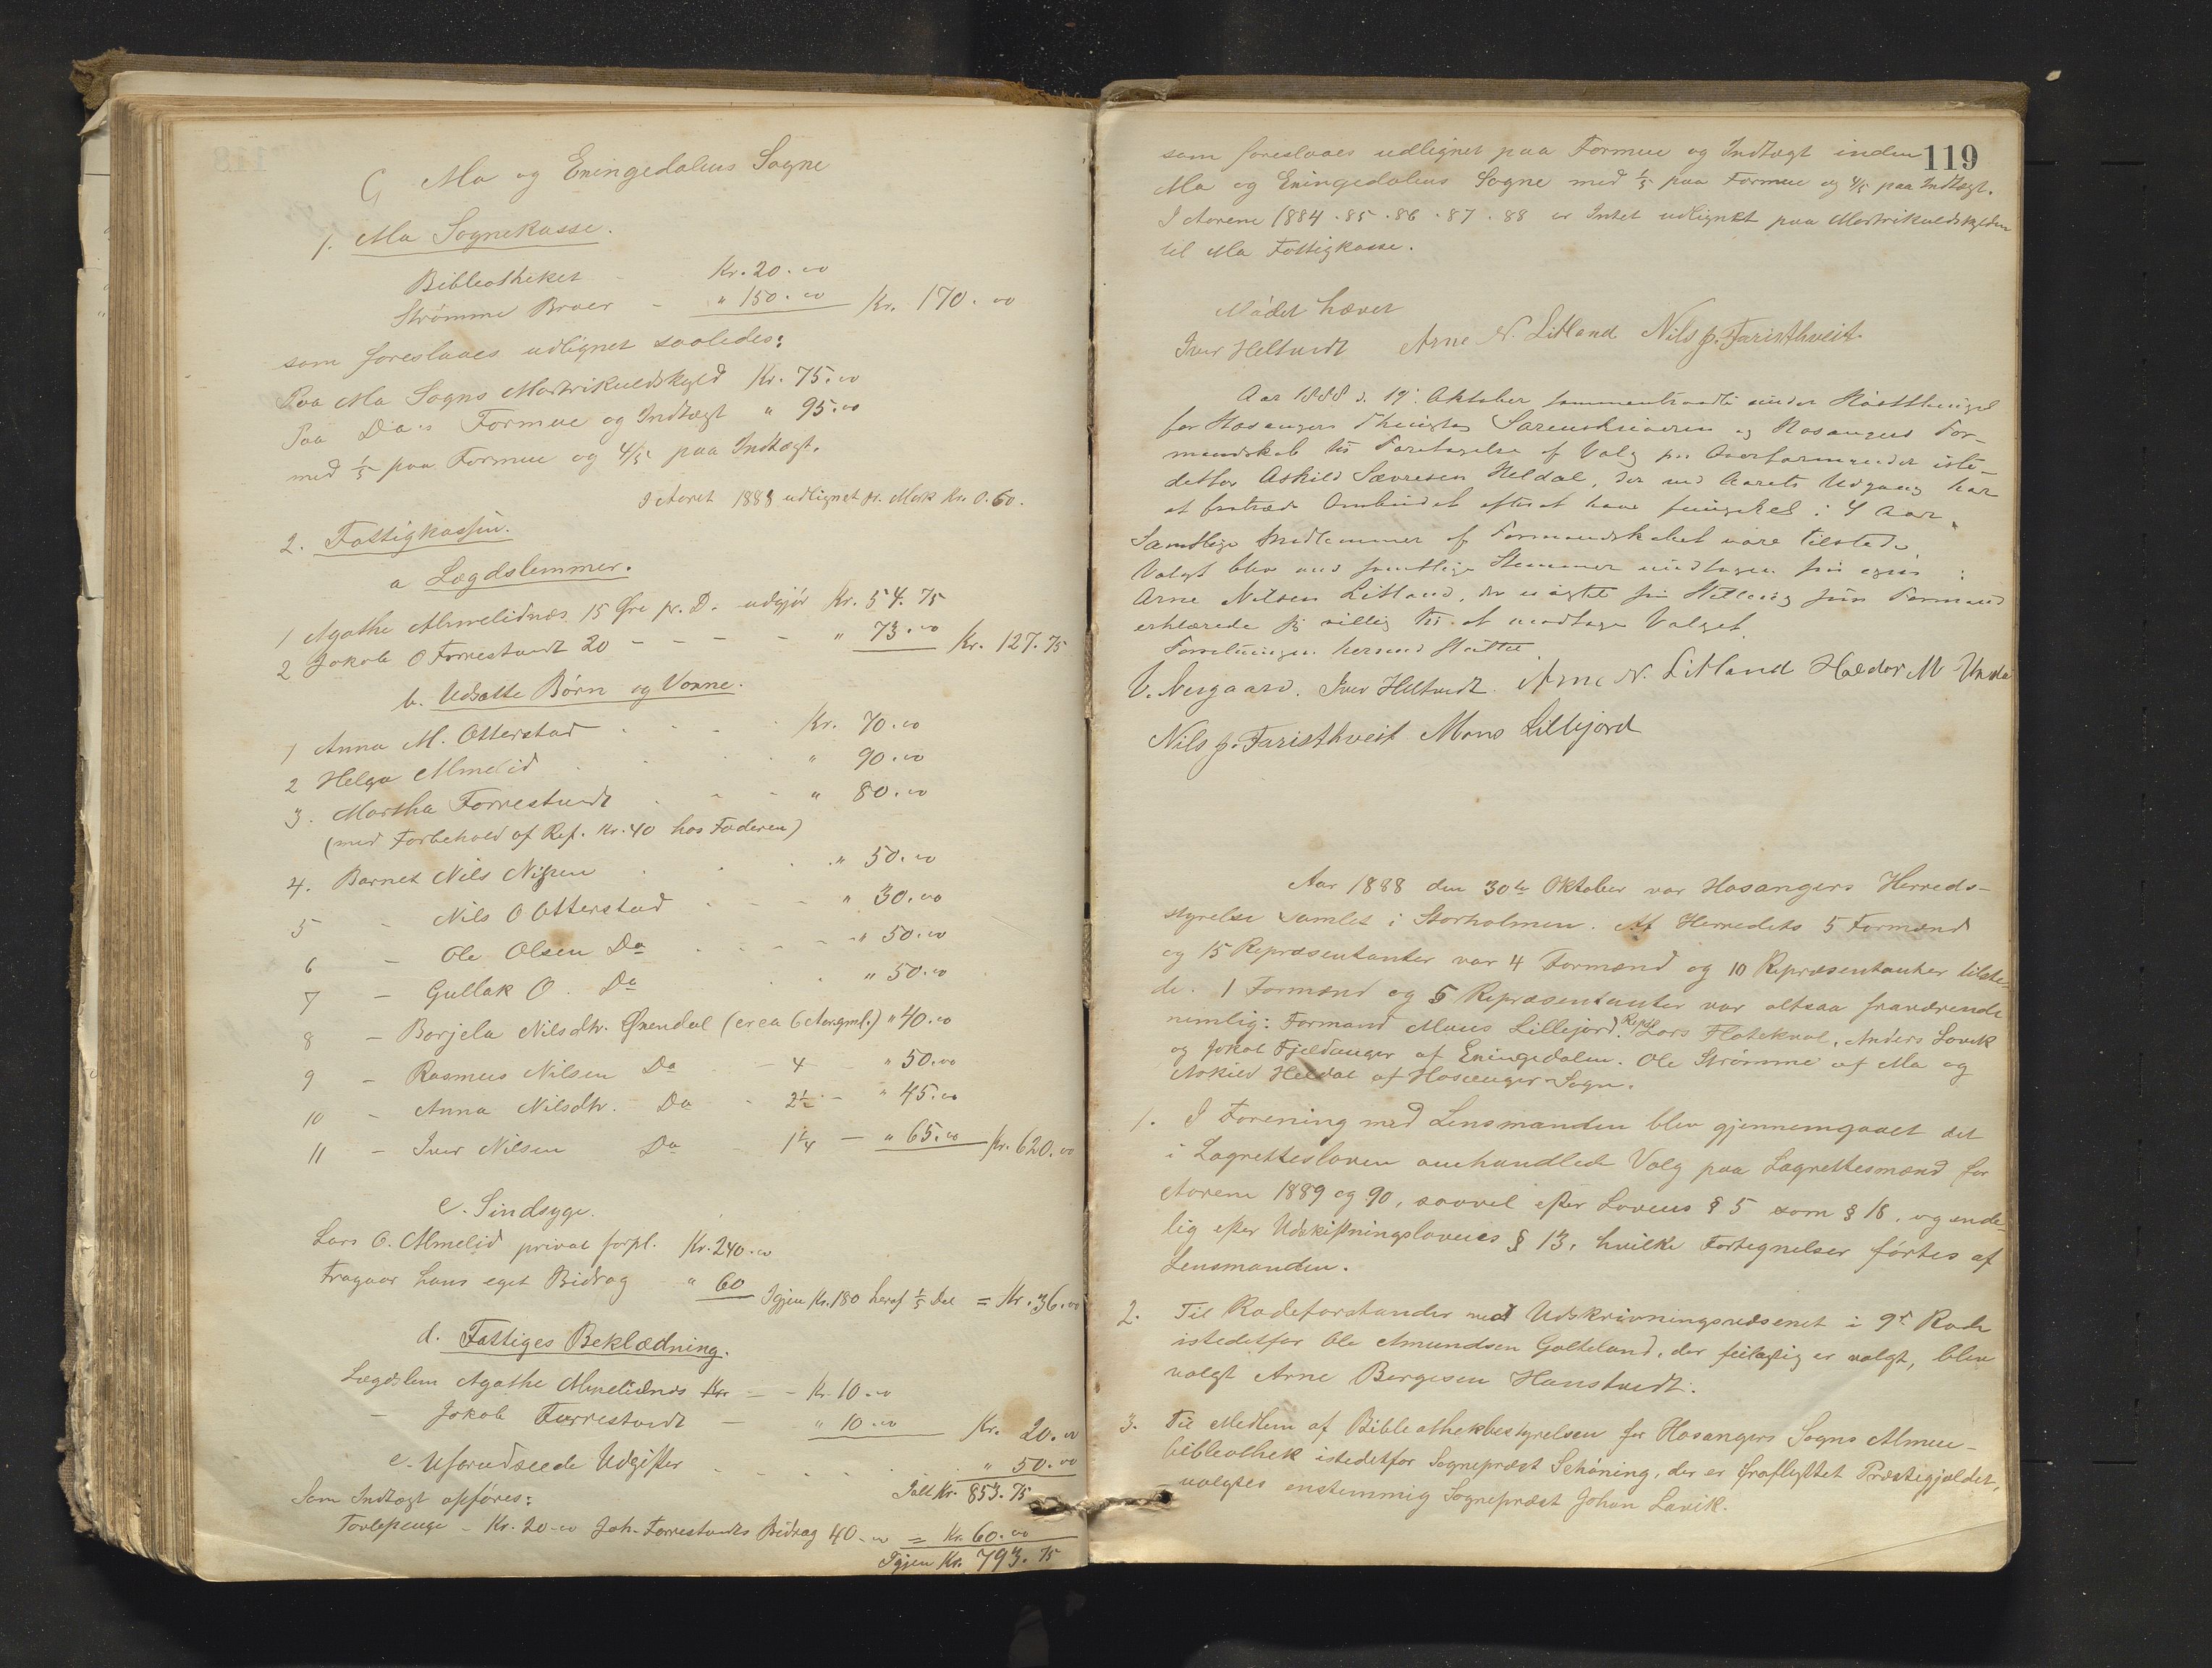 C, Mo og Eningedalens Sogne
1. Mo Sognekasse.
Bibliotheket - Kr. 20.00
Strømme Broer - " 150.00 Kr. 170.00
som foreslaaes udlignet saaledes:
Paa Mo Sogns Martrikuldskyld Kr. 75.00
Paa Do's Formue og Indtægt " 95.00
med 1/5 paa Formue og 4/5 paa Indtægt.
I Aaret 1888 udlignet pr. Mark Kr. 0.60.
2. Fattigkassen.
a Lægdslemmer.
1 Agathe Almelidnæs 15 Øre pr. D. udgjør Kr. 54.75
2 Jakob O Forrestvedt 20 - - - - " 73.00 Kr. 127.75
b. Udsatte Børn og Voxne.
1 Anna M. Otterstad - - - Kr. 70.00
2 Helga Almelid . . . " 90.00
3. Martha Forrestvedt . - - " 80.00
(med Forbehold af Ref. Kr. 40 hos Faderen)
4. Barnet Nils Nilsen . . . " 50.00
5 - Nils O Otterstad . - - " 30.00
6 - Ole Olsen Do . . - - " 50.00
7 - Gullak O. Do . . " 50.00
8 - Borjela Nilsdtr. Øxendal (er ca 6 Aar gml.) " 40.00
9 - Rasmus Nilsen Do - 4 - " 50.00
10 - Anna Nilsdtr. Do - 2½ - " 45.00
11 - Iver Nilsen Do - 1¼ - " 65.00 Kr. 620.00
c. Sindsyge.
Lars O. Almelid privat forpl. Kr. 240.00
Fragaar hans eget Bidrag " 60 Igjen Kr. 180 heraf 1/5 Del = Kr. 36.00
d. Fattiges Beklædning.
Lægdslem Agathe Almelidnæs Kr - - Kr. 10.00
- Jokob Forrestvedt - " 10.00 Kr. 20.00
e. Uforudseede Udgifter . . . . " 50.00
Ialt Kr. 853.75
Som Indtægt opføres:
Tovlepenge - Kr. 20.00 Joh. Forrestvedts Bidrag 40.00 = Kr. 60.00
Igjen Kr. 793.75
119
som foreslaaes udlignet paa Formue og Indtægt inden
Mo og Eningedalens Sogne med 1/5 paa Formue og 4/5 paa Indtægt.
I Aarene 1884.85.86.87.88 er Intet udlignet paa Martrikuldskylden
til Mo Fattigkasse.
Mødet hævet
Iver Heltvedt Arne N. Litland Nils J. Faristhveit.
Aar 1888 d. 19: Oktober sammentraadte under Høstthinget
for Hosangers Thinglag Sorenskriveren og Hosangers For-
mandskab til Foretagelse af Valg paa Overformynder iste-
detfor Askild Sævresen Heldal, der ved Aarets Udgang har
at fratræde Ombudet efter at have fungeret i 4 Aar.
Samtlige Medlemmer af Formandskabet vare tilstede.
Valgt blev med samtlige Stemmer undtagen sin egen:
Arne Nilsen Litland, der uagtet sin Stilling som Formand
erklærede sig villig til at modtage Valget.
Forretningen hermed sluttet
V. Nergaard. Iver Heltvedt. Arne N. Litland Haldor M Unda
Nils J. Faristhveit Mons Lillejord
Aar 1888 den 30te Oktober var Hosangers Herreds-
styrelse samlet i Storholmen. Af Herredets 5 Formænd
og 15 Repræsentanter var 4 Formænd og 10 Repræsentanter tilste-
de. 1 Formand og 5 Repræsentanter var altsaa fraværende
nemlig: Formand Mons Lillejord. Repr. Lars Flatekval, Anders Lavik
og Jokob Fjeldanger af Eningedalen. Ole Strømme af Mo og
Askild Heldal af Hosanger Sogn.
1. I Forening med Lensmanden blev gjennemgaaet det
i Lagretteslaven omhandlede Valg paa Lagrettesmænd for
Aarene 1889 og 90, saavel efter Lovens § 5 som § 18, og ende-
lig efter Udskiftningslovens § 13, hvilke Fortegnelser førtes af
Lensmanden.
2. Til Rodeforstander ved Udskrivningsvæsenet i 9de Rode
istedetfor Ole Amundsen Galteland, der feilagtig er valgt, blev
valgt Arne Bergesen Hanstvedt.
3. Til Medlem af Bibliothekbestyrelsen for Hosangers Sogns Almue-
bibliothek istedetfor Sogneprest Schøning, der er fraflyttet Præstegjældet,
valgtes enstemmig Sogneprest Johan Lavik.